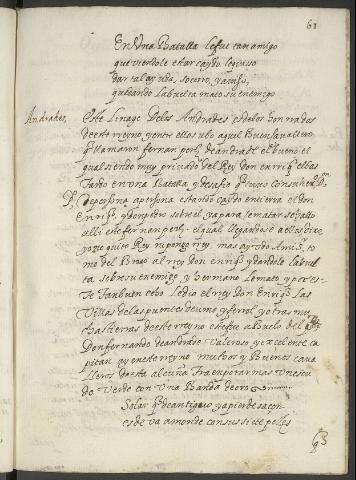 61
En Una Batalla le fue tan amigo
que viendole estar caydo le quiso
dar tal ayuda, socorro, y amigo,
quitando la buelta mato su enemigo
Andrades,
Este Linage Delos Andrades es delos honrrados
deeste reyno y entre ellos ubo aquel Buen Cavallero
q̃ llamaron fernan perez de andrade el bueno el
qual siendo muy privado del Rey don enrriq̃ el bas
tardo en una Batalla y desafio q̃ tuvo con su her.no
P.o De persona a persona estando caydo en tierra el don
Enrriq̃ y don pedro sobre el ya para le matar se hallo
alli este fernan perez el qual llegandose a ellos dixo
yo no quito Rey ni pongo rey mas ayudo Am.o to
mo del Braço al rey don enrriq̃ y dandole la buel
ta sobre su enemigo y hermano Lo mato y por es
te tan buen echo Le dio el rey don Enrriq̃ Las
Villas de las puentes deume y ferrol y otras mu
chas tierras deeste reyno este fue abuelo del
Don fernando de andrade Valeroso y excelente ca
pitan ay en este reyno muchos y Buenos cava
lleros desta alcuña traen por armas Un escu
do Verde con una Banda de oro
Solar q̃ de antiguo ya pierde sazon
es de vaamonde con sus siete peles